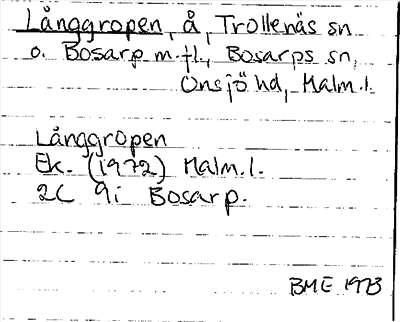 Långgropen, å, Trollenäs sn
o. Bosarp m.fl., Bosarps sn,
Onsjö hd, Malm.l.
Långgropen
Ek. (1972) Malm.l.
2C 9i Bosarp.
BME 1973